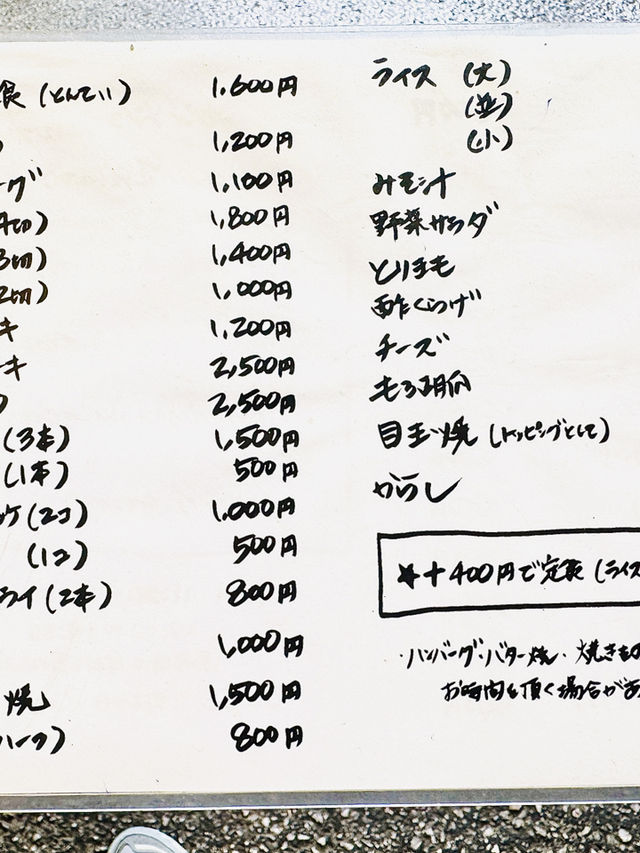 食(とんてい) 1,600円
1,200円
ーグ 1,100円
4切) 1,800円
3切) 1,400円
2切) 1,000円
キ 1,200円
ーキ 2,500円
2,500円
(3本) 1,500円
(1本) 500円
ッケ(2コ) 1,000円
(1コ) 500円
フライ(2本) 800円
1,000円
焼 1,500円
ハーフ) 800円
ライス (大)
(並)
(小)
みそ汁
野菜サラダ
とりも毛
酢くらげ
チーズ
もろ胡瓜
目玉焼(トッピングとして)
からし
★+400円で定食(ライス
・ハンバーグ・バター焼・焼きもの
お時間を頂く場合があ